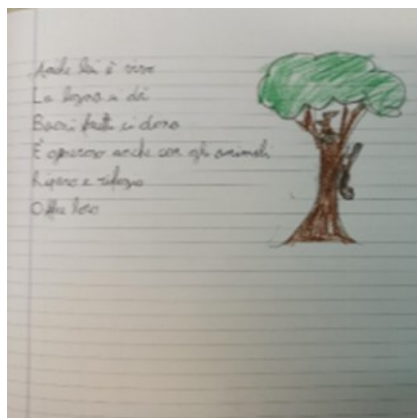 Anche lui è vivo
La legna ci dà
Buoni frutti ci dona
È generoso anche con gli animali
Riparo e rifugio
Offre loro